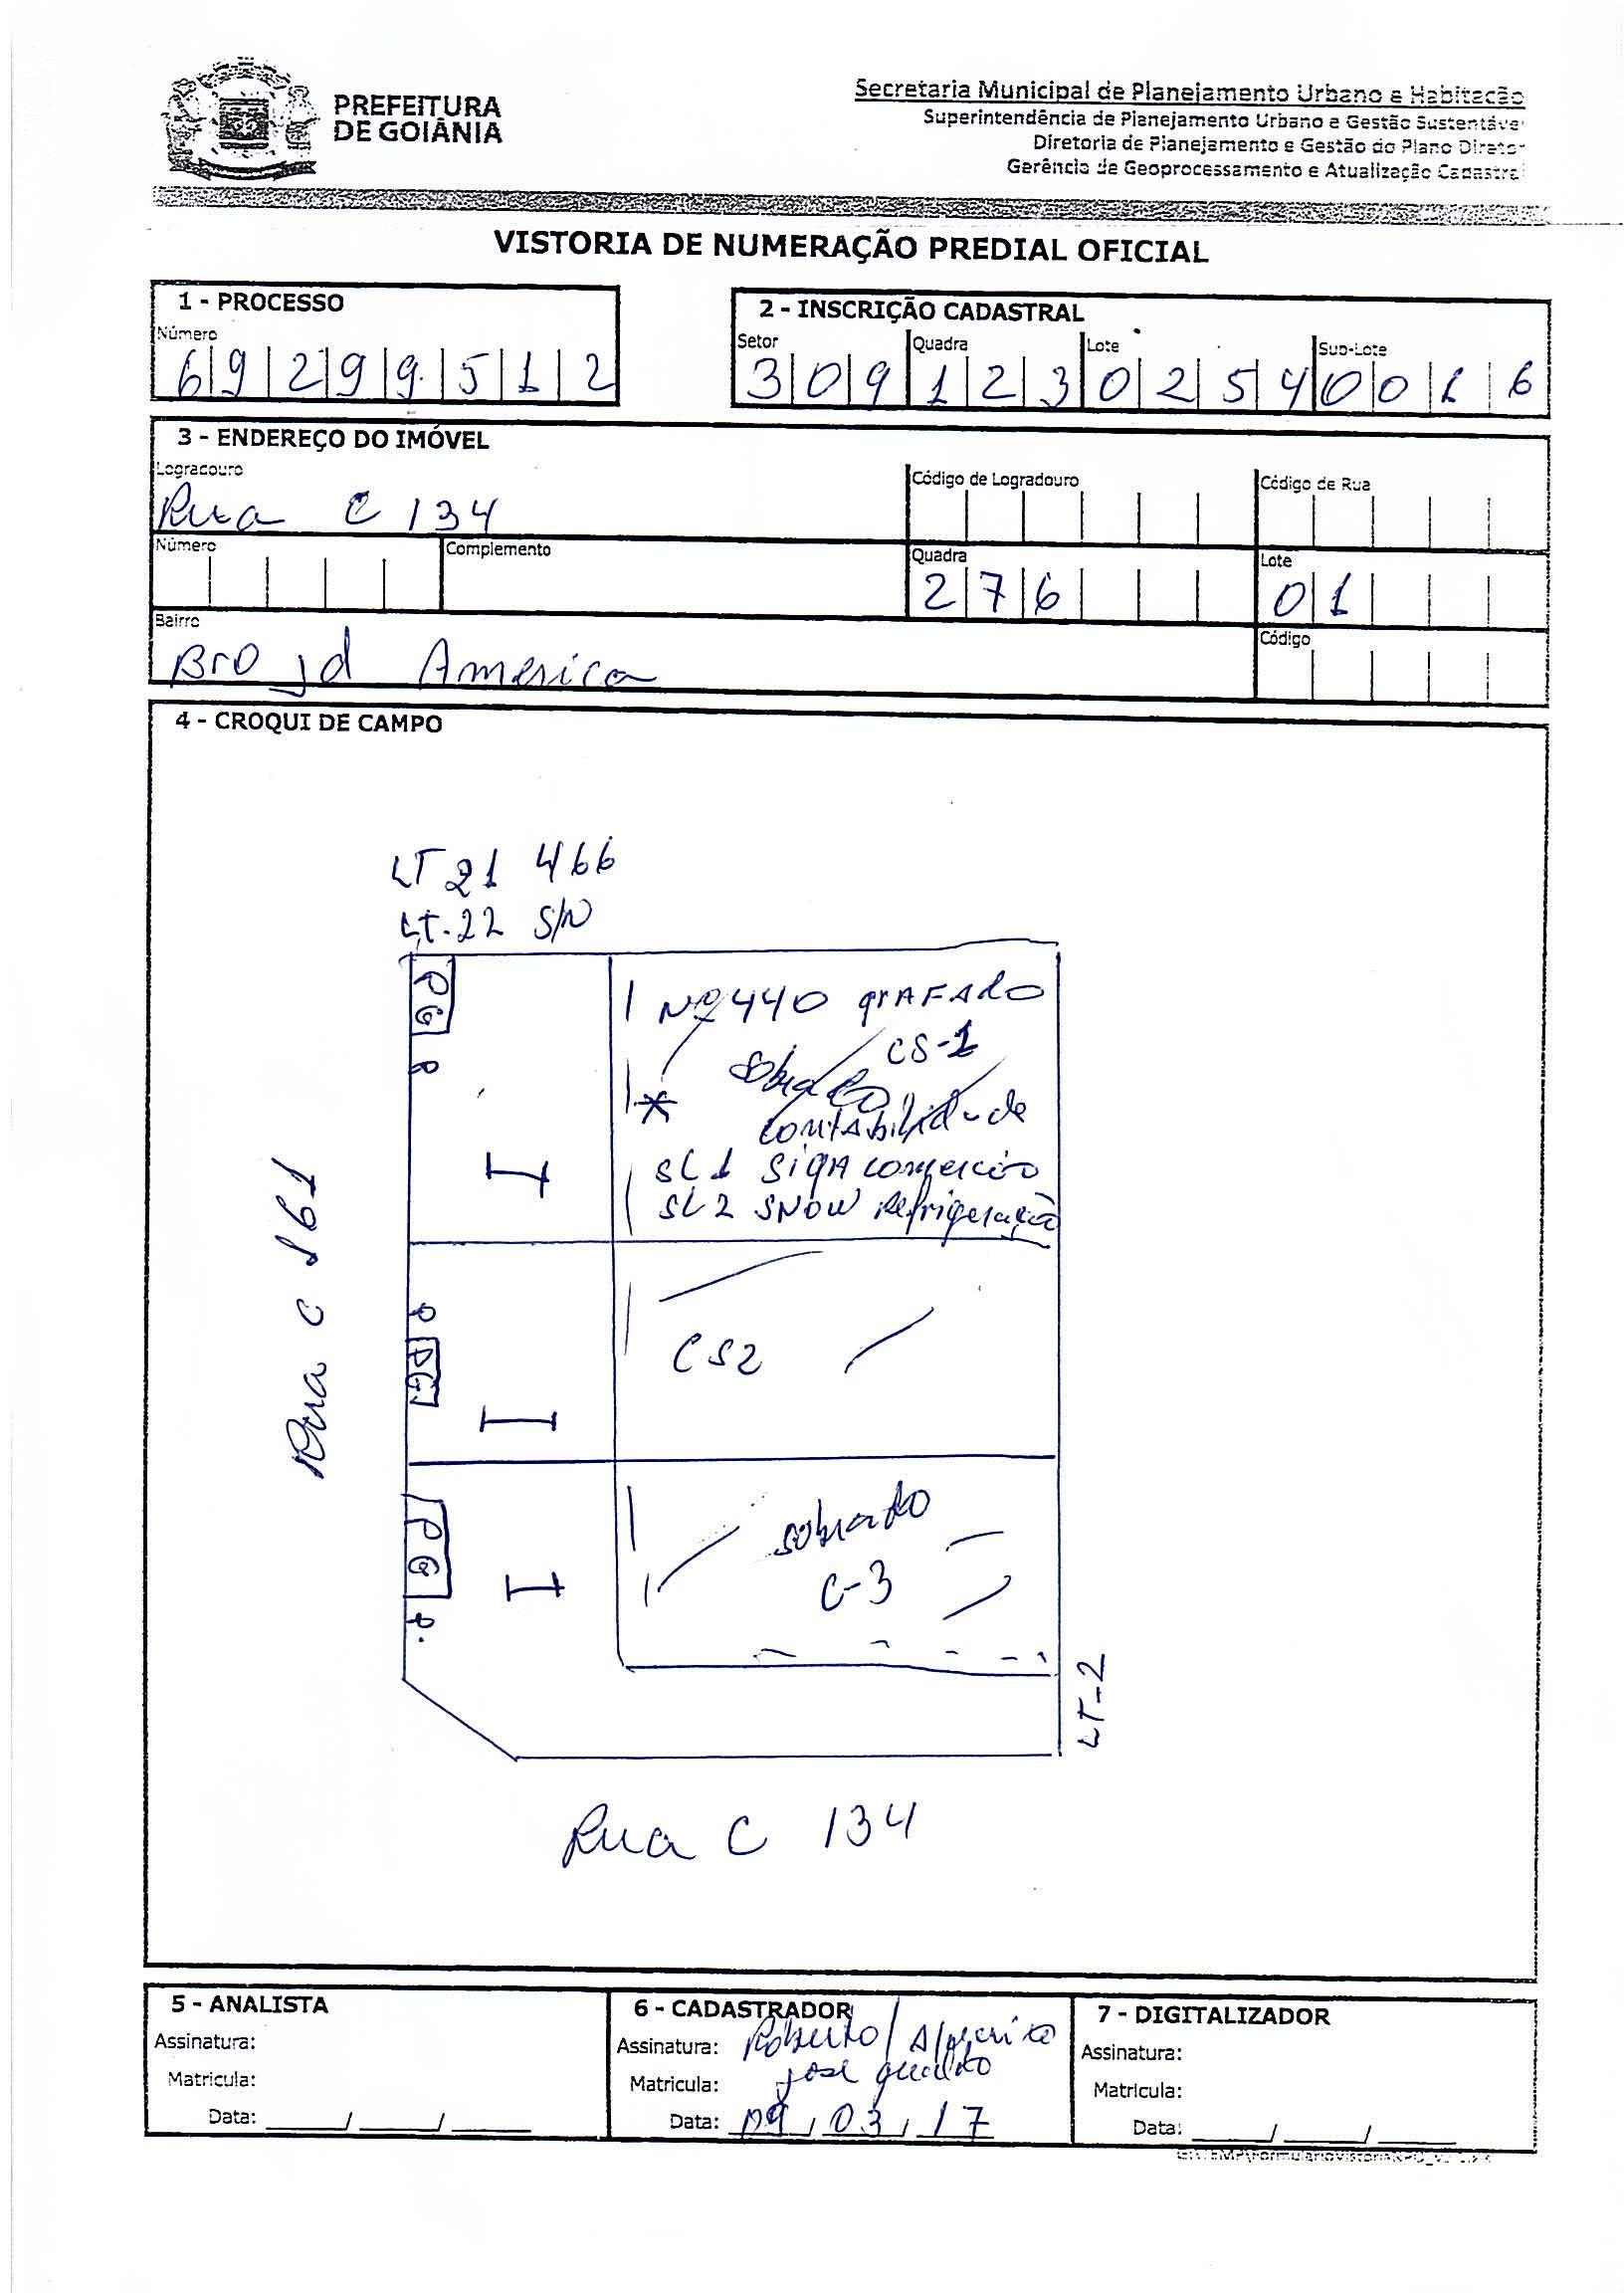 PREFEITURA
DE GOIÂNIA
Secretaria Municipal de Planejamento Urbano e Habitação
Superintendência de Planejamento Urbano e Gestão Sustentável
Diretoria de Planejamento e Gestão do Plano Diretor
Gerência de Geoprocessamento e Atualização Cadastral
VISTORIA DE NUMERAÇÃO PREDIAL OFICIAL
1 - PROCESSO
Número
69299512
2 - INSCRIÇÃO CADASTRAL
Setor Quadra Lote Sub-Lote
309 123 0254 0016
3 - ENDEREÇO DO IMÓVEL
Logradouro Código de Logradouro Código de Rua
Rua C 134
Número Complemento Quadra Lote
276 01
Bairro Código
Bro Jd America
4 - CROQUI DE CAMPO
LT 21 466
LT-22 S/N
PG
Nº 440 grafado
CS-1
sobrado
contabilidade
SL 1 SIGA comercio
SL 2 SNOW Refrigeração
Rua C 161
P
PG
CS2
PG
P.
sobrado
C-3
LT-2
Rua C 134
5 - ANALISTA
Assinatura:
Matricula:
Data: ____/____/____
6 - CADASTRADOR
Assinatura: Roberto/
Matricula: José
Data: 09/03/17
7 - DIGITALIZADOR
Assinatura:
Matricula:
Data: ____/____/____